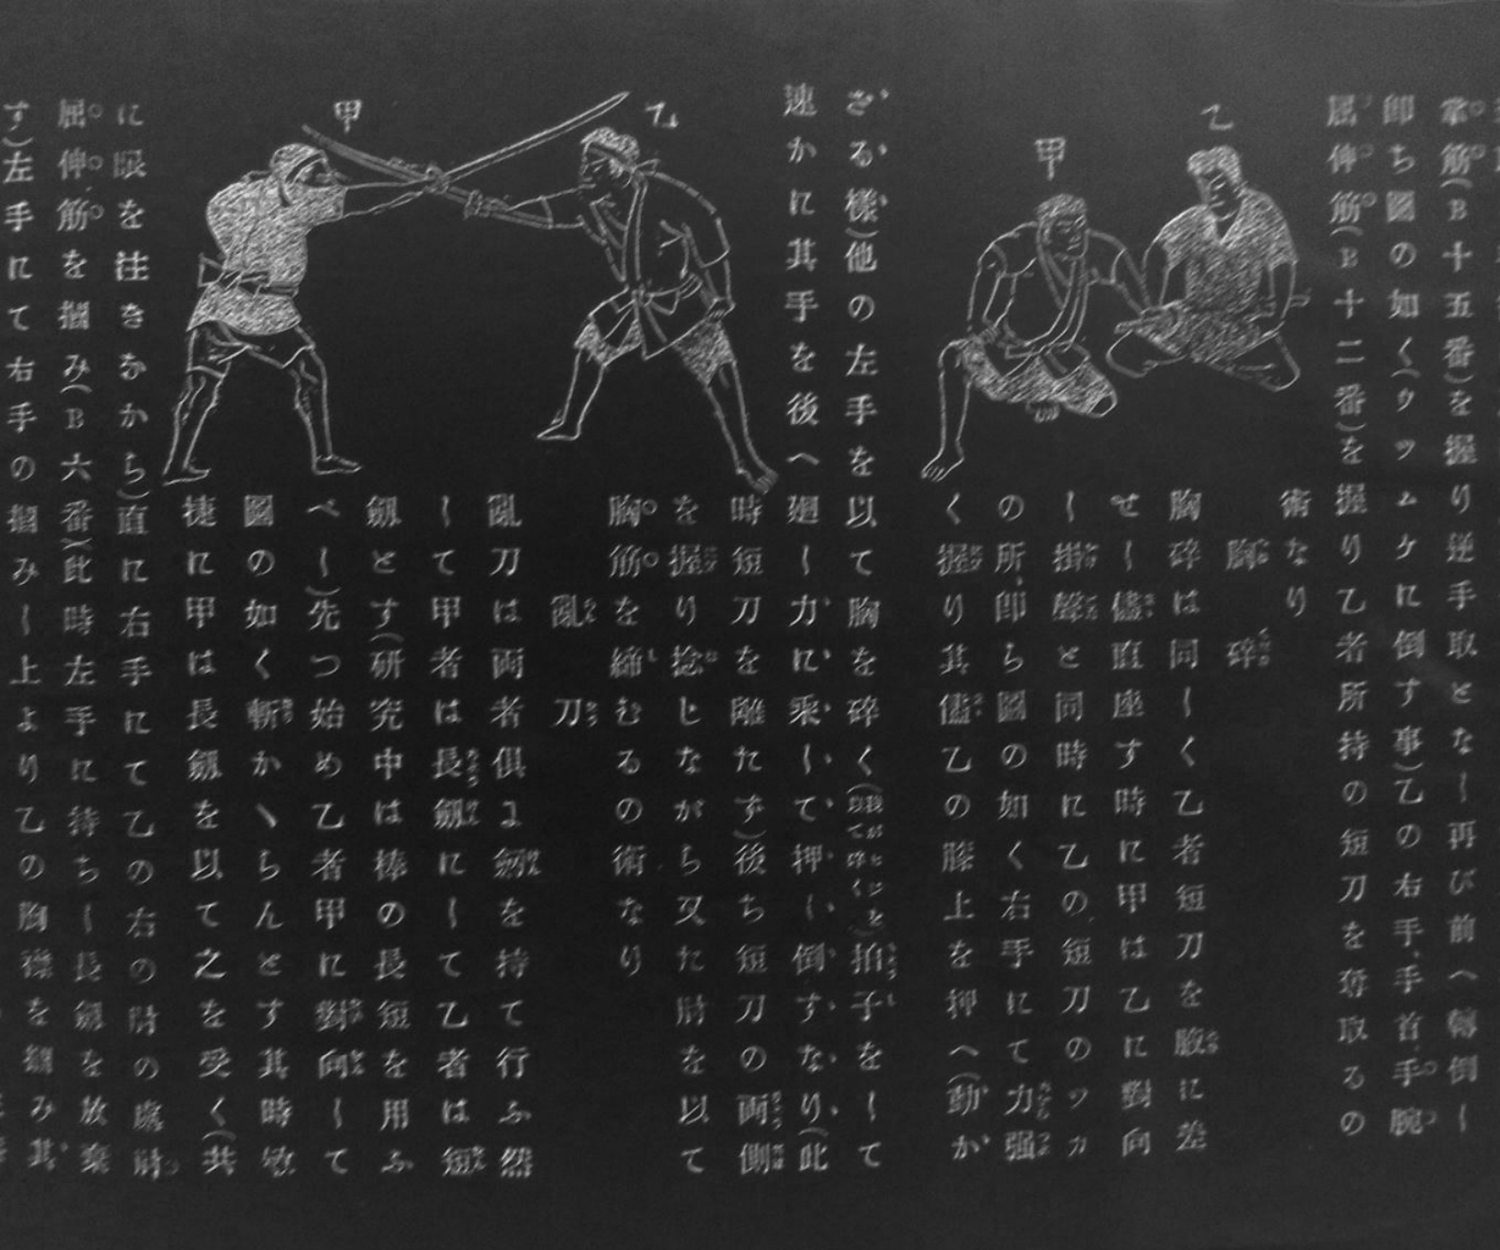 掌筋(B十五番)を握り逆手取となし再び前へ轉倒し
卽ち圖の如く(ウツムケに倒す事)乙の右手、手首、手腕
屈伸筋(B十二番)を握り乙者所持の短刀を奪取るの
術なり
胸碎
乙
甲
胸碎は同しく乙者短刀を腹に差
せし儘直座す時に甲は乙に對向
し掛聲と同時に乙の短刀のツカ
の所、卽ち圖の如く右手にて力强
く握り其儘乙の膝上を押へ(動か
ざる樣)他の左手を以て胸を碎く
拍子をして
速かに其手を後へ廻し力に乘して押し倒すなり、(此
時短刀を離たず)後ち短刀の両側
を握り捻じながら又た肘を以て
胸筋を締むるの術なり
亂刀
乙
甲
亂刀は両者俱に劔を持て行ふ然
して甲者は長劔にして乙者は短
劔とす(研究中は棒の長短を用ふ
べし)先つ始め乙者甲に對向して
圖の如く斬かゝらんとす其時敏
捷に甲は長劔を以て之を受く(共
に眼を注きをから)直に右手にて乙の右の肘の處
屈伸筋を摑み(B六番)此時左手に持ちし長劔を放棄
す)左手にて右手の摑みし上より乙の胸襟を摑み其